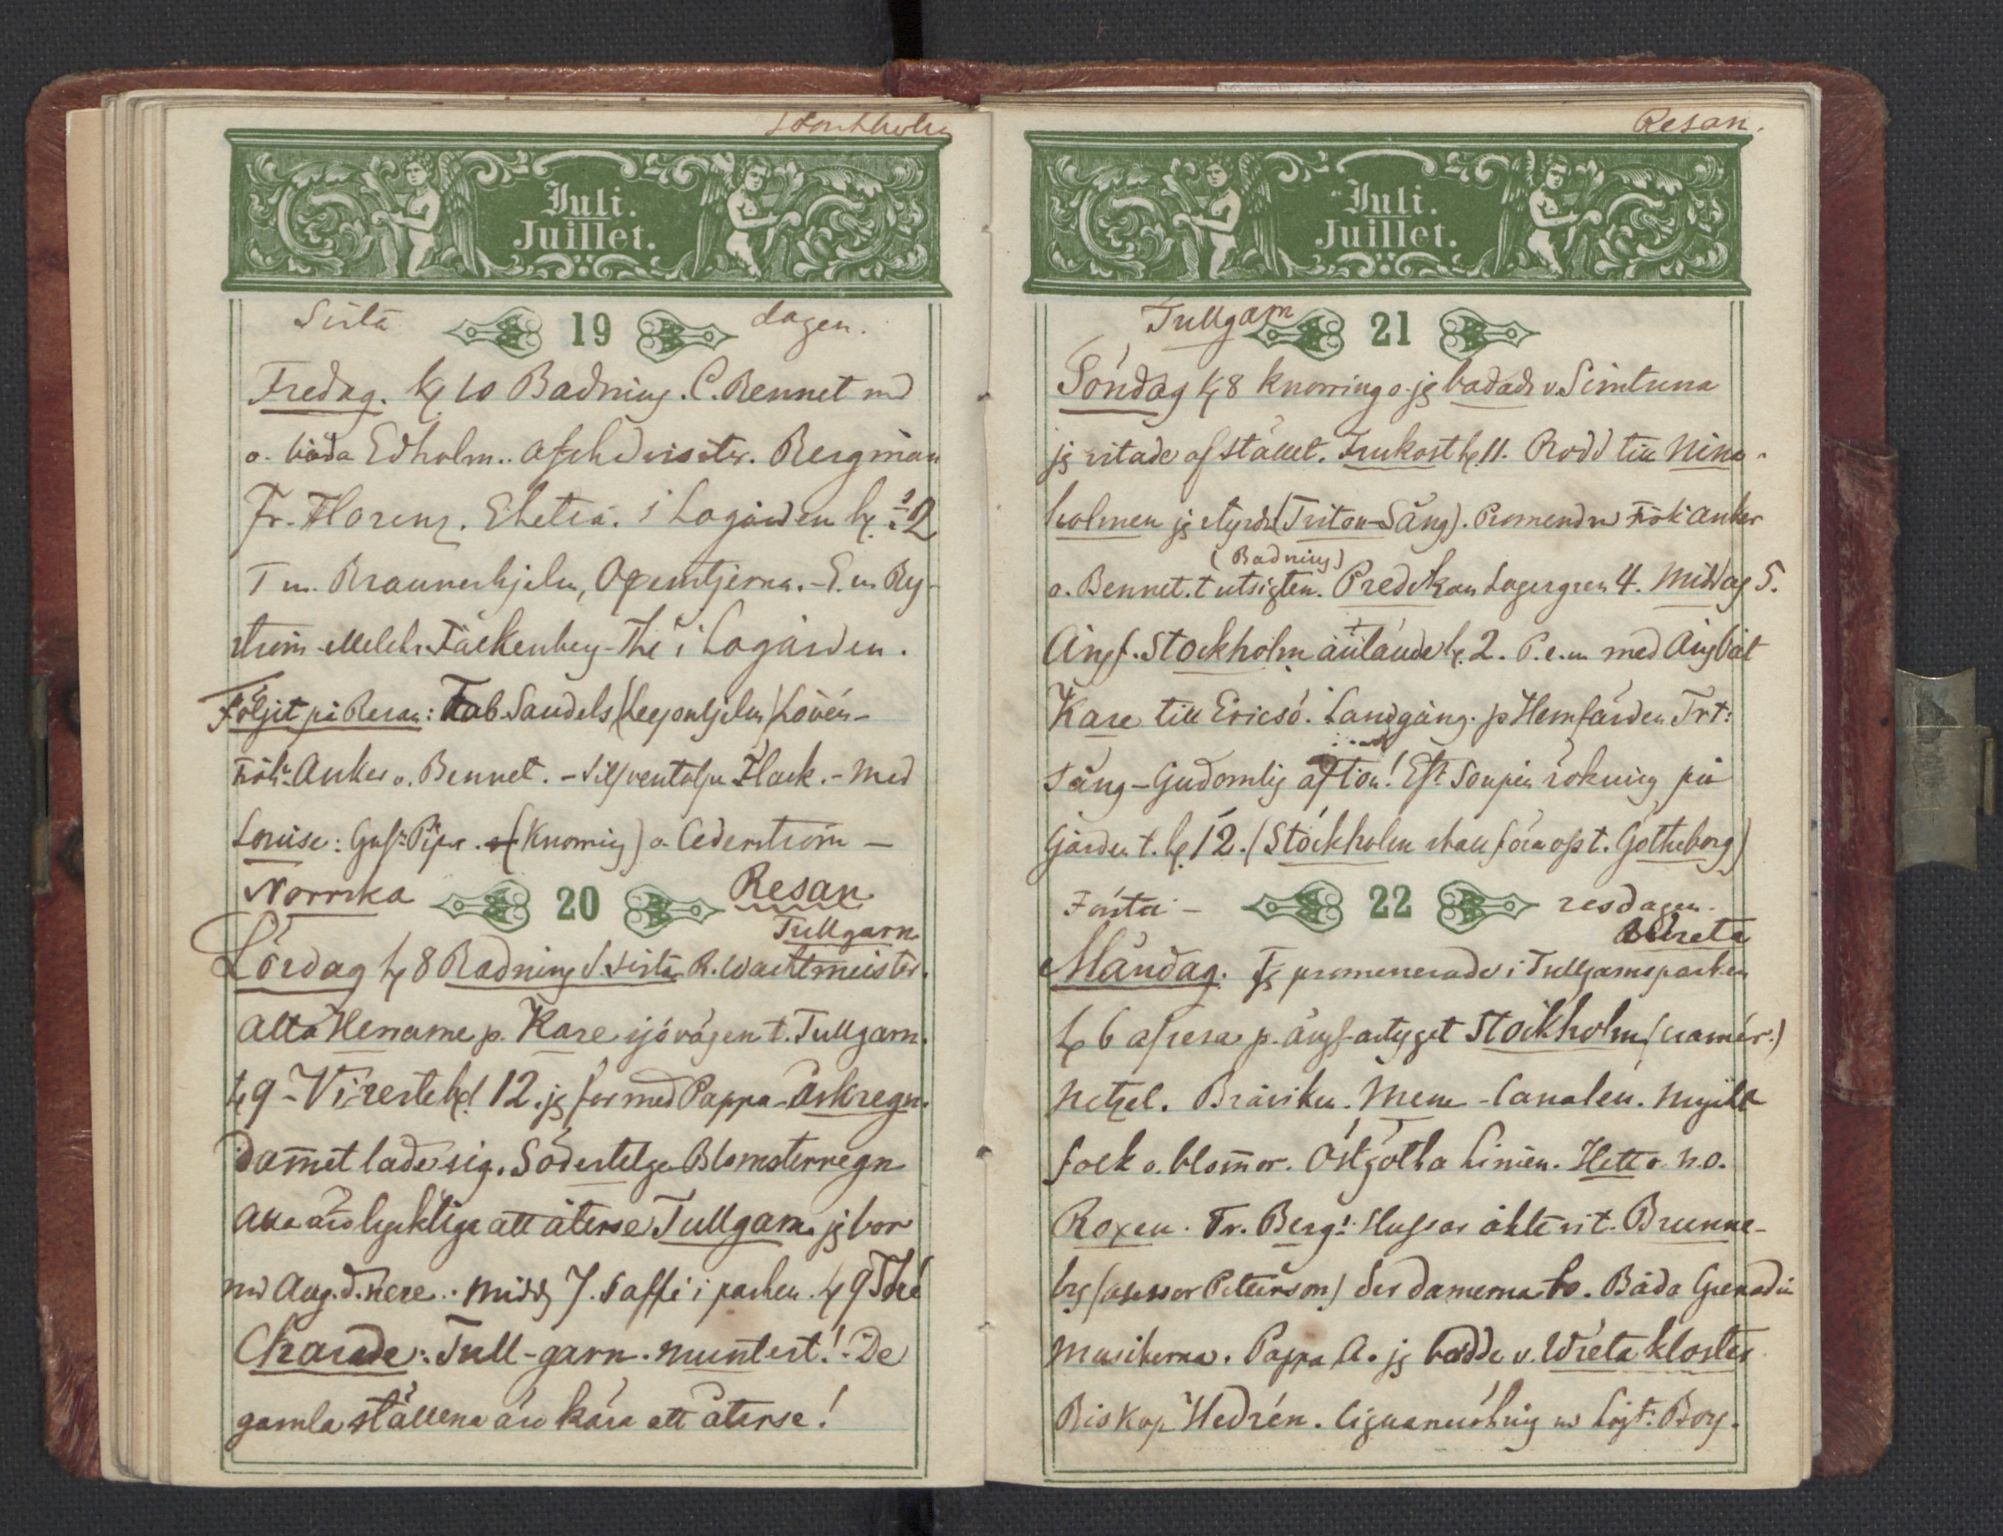 Stockholm
Juli.
Juillet.
Sista 19 dagen.
Fredag. kl 10 Badning. C. Bennet md
o. båda Edholm. Afskedvisiter. Bergman
Fr. Florenz. i Logården kl. ½2
T m. Braunerhjelm, Oxenstjerna. - E. m By-
ström Melch. Falkenberg - Thé i Logården.
Följit på Resan: Tab Sandels (Leyonhjelm) Lovén -
Frök. Anker o. Bennet. - Flack. - Med
Louise: Gust. Piper. (Knorring) o Cederström -
Norrska 20 Resan
Tullgarn
Lördag kl 8 Badning d. sista R. Wachtmeister.
Alla Herrarne p. Kare sjövägen t. Tullgarn.
kl 9 - Vi reste kl 12. jg for med Pappa - åskregn.
Dammet lade sig. Södertelge Blomsterregn
Alla äro lyckliga att återse Tullgarn. jg bor
md Aug. d. nere. Midd 7. Caffe i parken. kl 9 Thé
Charade: Tull-garn. muntert! De
gamla ställena äro kära att återse!
Resan.
Juli.
Juillet.
Tullgarn 21
Söndag kl 8 Knorring o. jg badade v. Simtuna
jg ritade af stället. Frukost kl. 11. Rodd till Nina-
holmen jg styrde (Triton-Sång). Promend m Frök Anker
(Badning)
o. Bennet. t utsigten. Predikan Lagergren 4. Middag 5.
Ångf. Stockholm anlände kl. 2. P. e. m med Ångbåt
Kare till Ericsö. Landgång. p Hemfärden Trt:
sång - Gudomlig afton! Eft Soupén rökning på
Gården t. kl 12. (Stockholm skall föra oss t. Götheborg)
Första - 22 resdagen.
Wreta
Måndag. Jg promenerade i Tullgarnsparken
kl 6 afresa p. ångfartyget Stockholm (Cramér.)
Netzel. Bråviken. Mem - Canalen. Mycket
folk o. blommor. Östgötha Linien. Hetta n.o.
Roxen. Fr. Berg: Hussar åkte vi t. Brunne-
by (assessor Peterson) der damerna bo. Båda Grenadir
Musikerna. Pappa A. jg badde v. Wreta kloster
Biskop Hedrén. Cigarrrökning m Löjt: Boy.